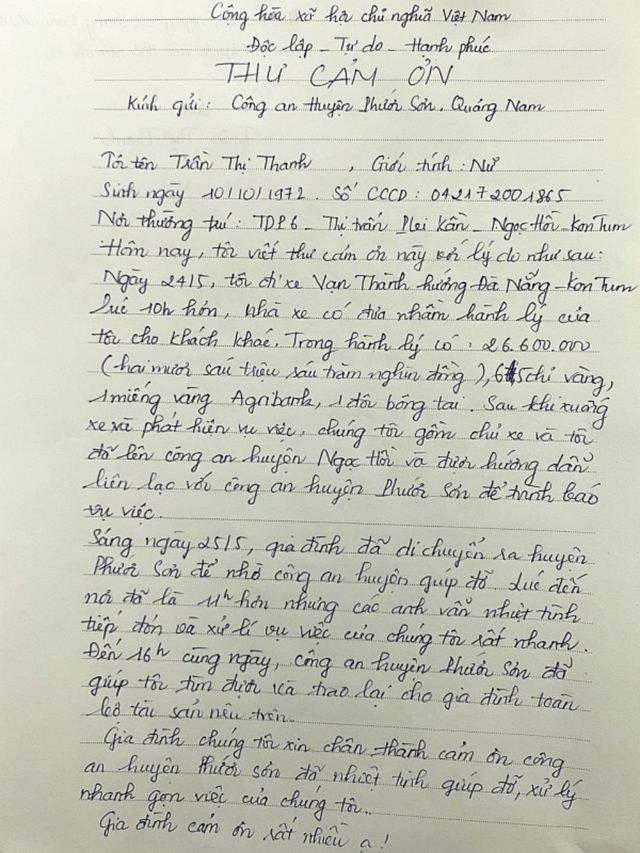 Cộng hòa xã hội chủ nghĩa Việt Nam
Độc lập - Tự do - Hạnh phúc
THƯ CẢM ƠN
Kính gửi: Công an Huyện Phước Sơn. Quảng Nam
Tôi tên Trần Thị Thanh , Giới tính: Nữ
Sinh ngày 10/10/1972. Số CCCD: 042172001865
Nơi thường trú: TDP6 - Thị trấn Plei Kần - Ngọc Hồi - KonTum
Hôm nay, tôi viết thư cảm ơn này với lý do như sau:
Ngày 24/5, tôi đi xe Vạn Thành hướng Đà Nẵng - KonTum
lúc 10h hơn, nhà xe có đưa nhầm hành lý của
tôi cho khách khác. Trong hành lý có: 26.600.000
(hai mươi sáu triệu sáu trăm nghìn đồng), 5 chỉ vàng,
1 miếng vàng Agribank, 1 đôi bông tai. Sau khi xuống
xe và phát hiện vụ việc, chúng tôi gồm chủ xe và tôi
đã lên công an huyện Ngọc Hồi và được hướng dẫn
liên lạc với công an huyện Phước Sơn để trình báo
vụ việc.
Sáng ngày 25/5, gia đình đã di chuyển ra huyện
Phước Sơn để nhờ công an huyện giúp đỡ. Lúc đến
nơi đã là 11h hơn nhưng các anh vẫn nhiệt tình
tiếp đón và xử lí vụ việc của chúng tôi rất nhanh.
Đến 16h cùng ngày, công an huyện Phước Sơn đã
giúp tôi tìm được và trao lại cho gia đình toàn
bộ tài sản nêu trên.
Gia đình chúng tôi xin chân thành cảm ơn công
an huyện Phước Sơn đã nhiệt tình giúp đỡ, xử lý
nhanh gọn việc của chúng tôi..
Gia đình cảm ơn rất nhiều ạ!